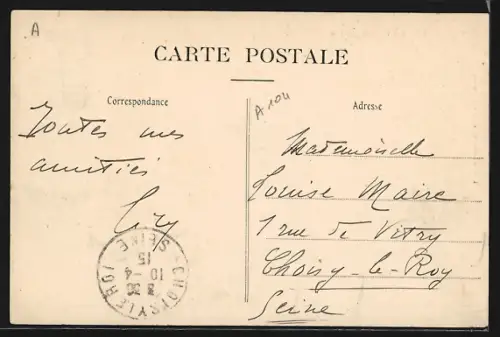 A
CARTE POSTALE
Correspondance
A 104
Adresse
Toutes mes
amitiés
Mademoiselle
Louise Maire
1 rue de Vitry
Choisy-le-Roy
Seine
CHOISY LE ROI
3 30
10-4
15
SEINE